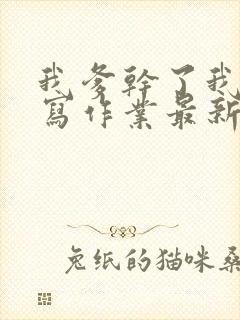 我爹幹了我
寫作業最新
兔纸的猫咪桑